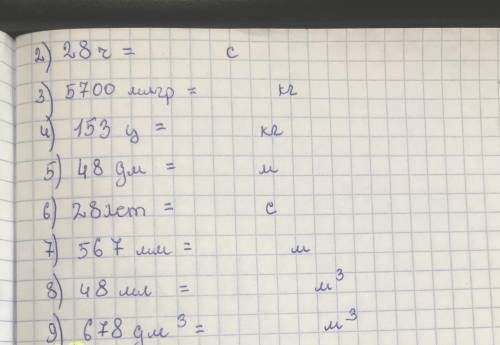 2) 28 ч = с
3) 5700 милгр = кг
4) 153 ц = кг
5) 48 дм = м
6) 28 лет = с
7) 567 мм = м
8) 48 мл = м³
9) 678 дм³ = м³